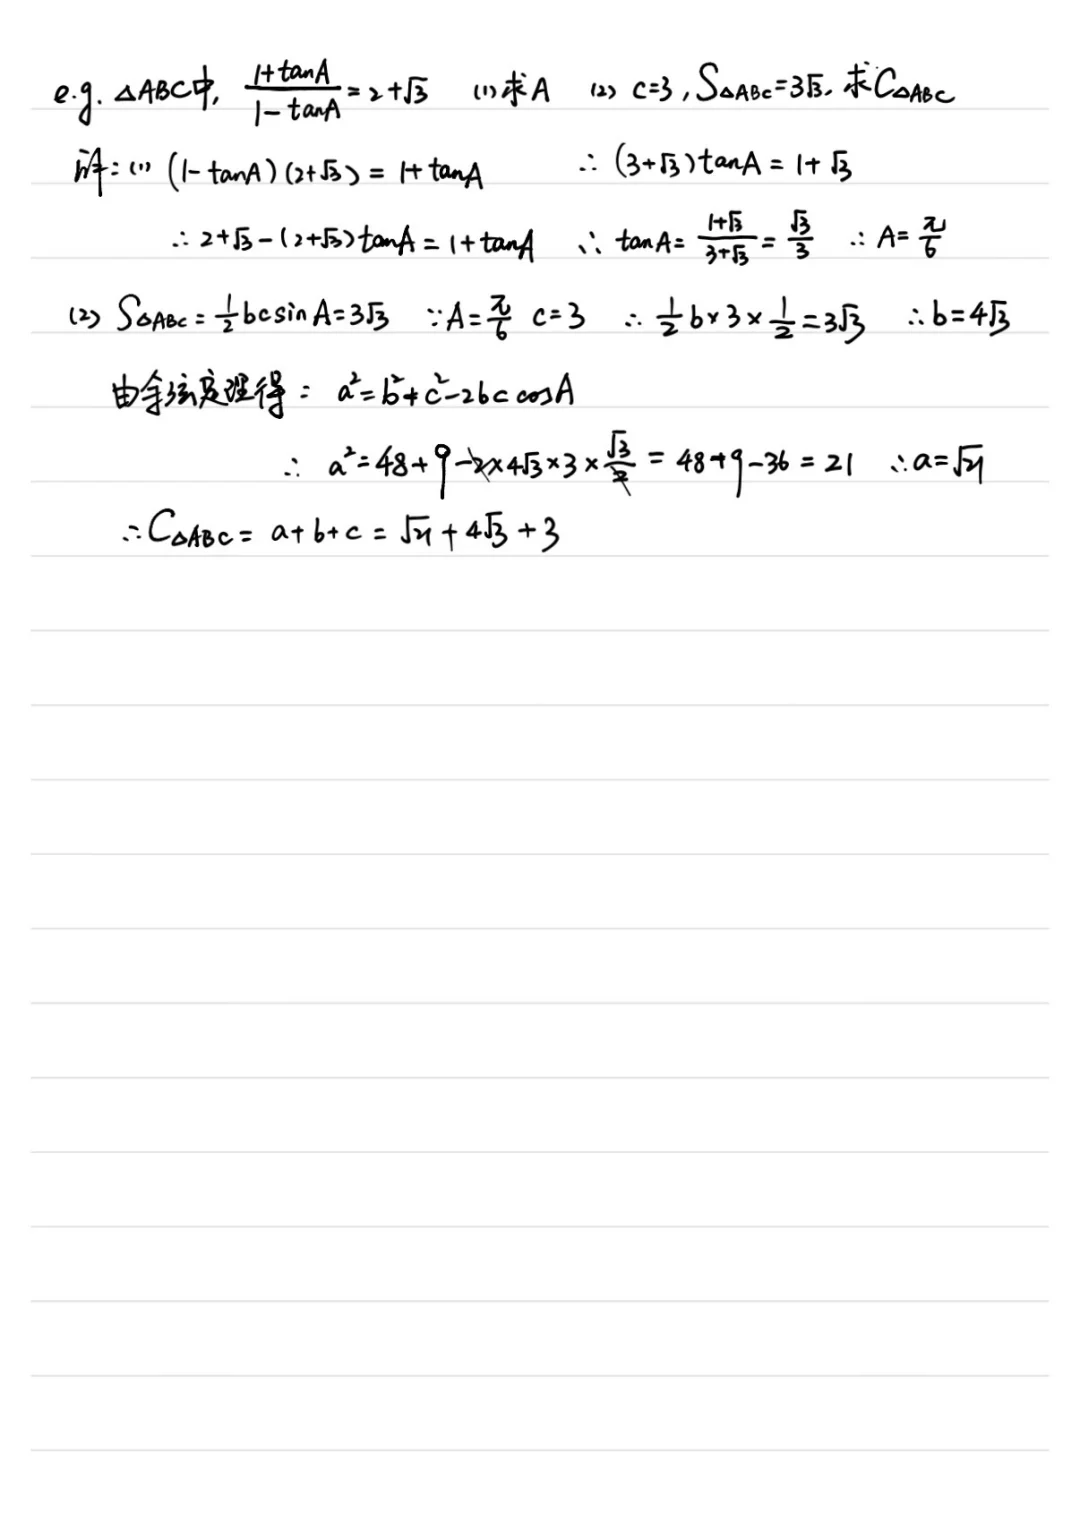 e.g. △ABC中, (1+tanA)/(1-tanA)=2+√3 (1)求A (2) c=3, S△ABC=3√3, 求C△ABC
解:(1) (1-tanA)(2+√3)=1+tanA ∴(3+√3)tanA=1+√3
∴2+√3-(2+√3)tanA=1+tanA ∴tanA=(1+√3)/(3+√3)=√3/3 ∴A=π/6
(2) S△ABC=1/2bcsinA=3√3 ∵A=π/6 c=3 ∴1/2b×3×1/2=3√3 ∴b=4√3
由余弦定理得: a²=b²+c²-2bccosA
∴a²=48+9-2×4√3×3×√3/2=48+9-36=21 ∴a=√21
∴C△ABC=a+b+c=√21+4√3+3